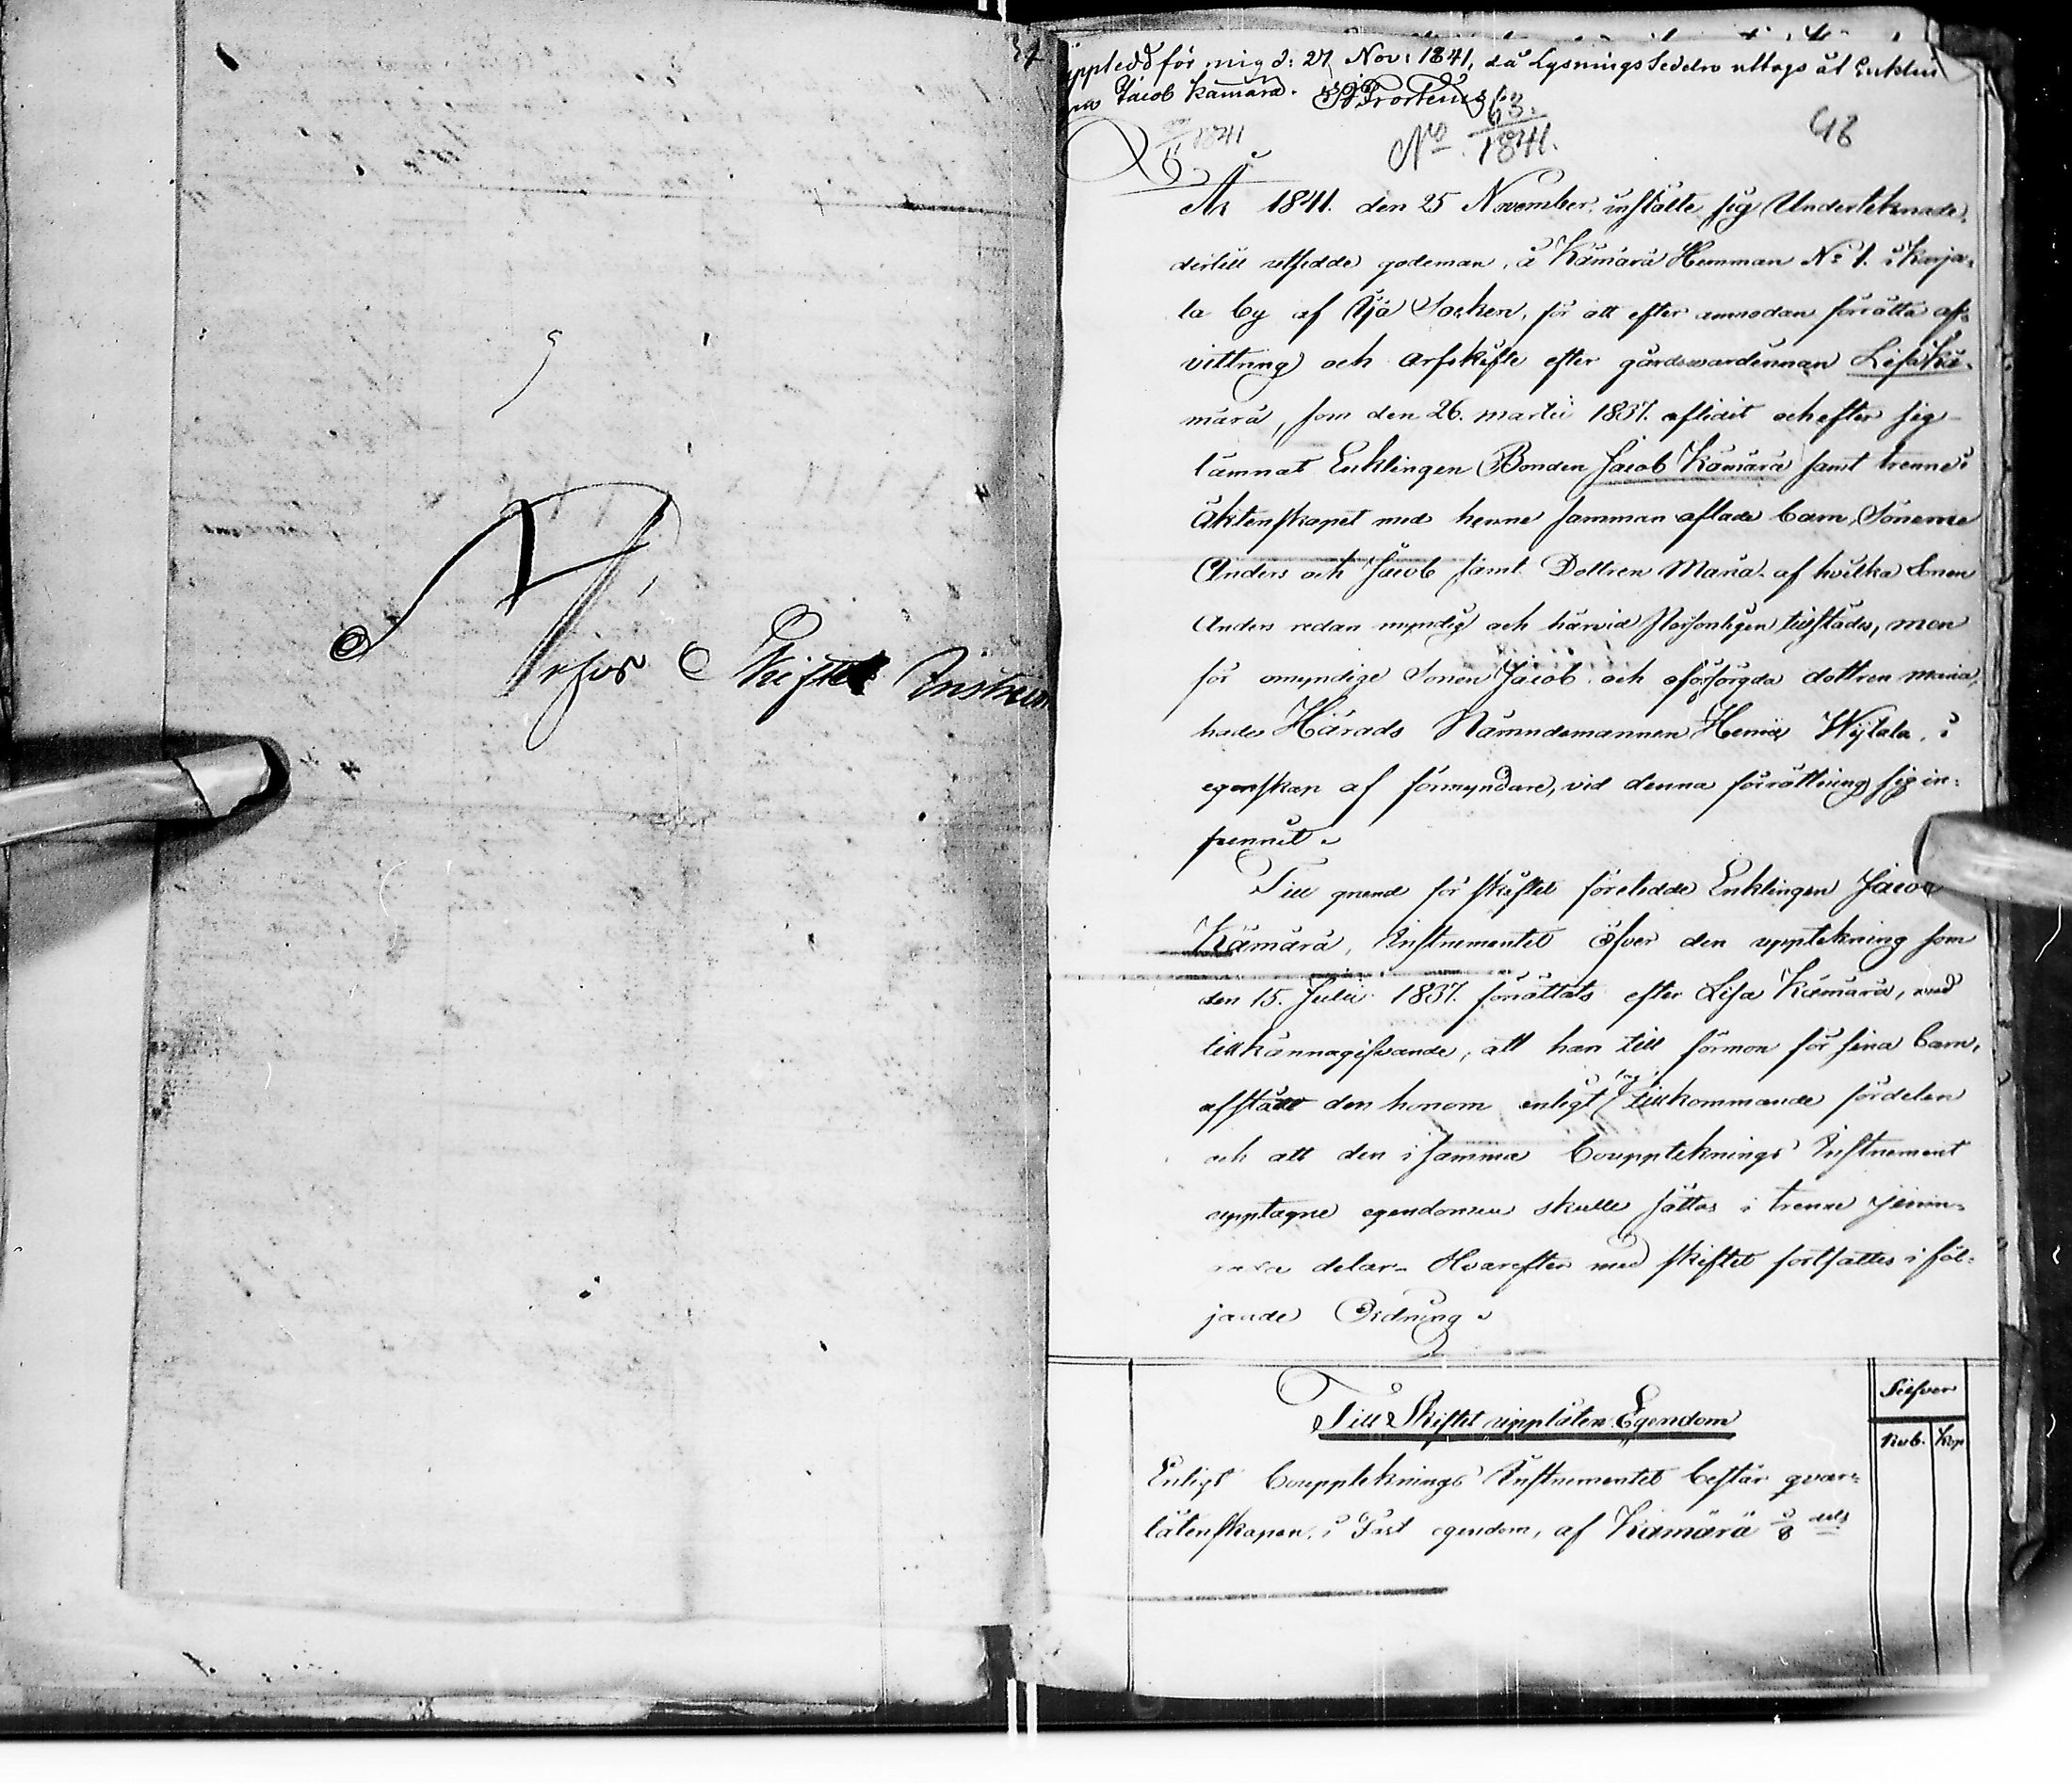 Arfvs Skiftes Instrum
Uppledd för mig d: 27 Nov: 1841, då Lysnings Sedeln uttogs åt Enklin
Jacob Kämärä.
1841
No 63. 1841.
48
År 1841. den 25 November. instälte sig Underteknade,
dertill utsedde godeman, å Kämärä Hemman No 1. i Karja=
la by af Socken, för att efter anmodan förrätta af=
vittring och arfskifte efter gårdsvardinnan Lisa Kä=
märä, som den 26. martii 1837. aflidit och efter sig
lämnat Enklingen Bonden Jacob Kämärä samt trenne i
äktenskapet med henne samman aflade barn, Sönerne
Anders och Jacob samt Dottren Maria. af hvilka Sonen
Anders redan myndig och härvid Personligen tillstädes, men
för omyndige Sonen Jacob och oförsörgda dottren maria,
hade Härads Nämndemannen Henric Wijtala, i
egenskap af förmyndare, vid denna förrättning sig in=
funnit.
Till grund för skiftet företedde Enklingen Jacob
Kämärä, Instrumentet öfver den uppteckning som
den 15. Julii 1837. förrättats efter Lisa Kämärä, med
tillkännagifvande, att han till förmon för sina barn,
afstått den honom enligt lag tillkommande fördelen
och att den i samma bouppteknings Instrument
upptagne egendomen skulle sättas i trenne jemn=
delar. Hvarefter med skiftet fortsattes i föl=
jande Ordning.
Till Skiftet uppläten Egendom
Silfver
Rub. Kop
Enligt bouppteknings Instrumentet består qvar=
låtenskapen. i Fast egendom, af Kämärä 3/8 dels